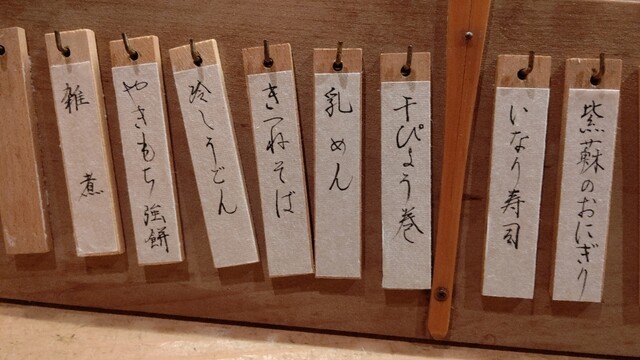 紫蘇のおにぎり
いなり寿司
干ぴょう巻
乳めん
きつねそば
冷しうどん
やきもち強餅
雑煮